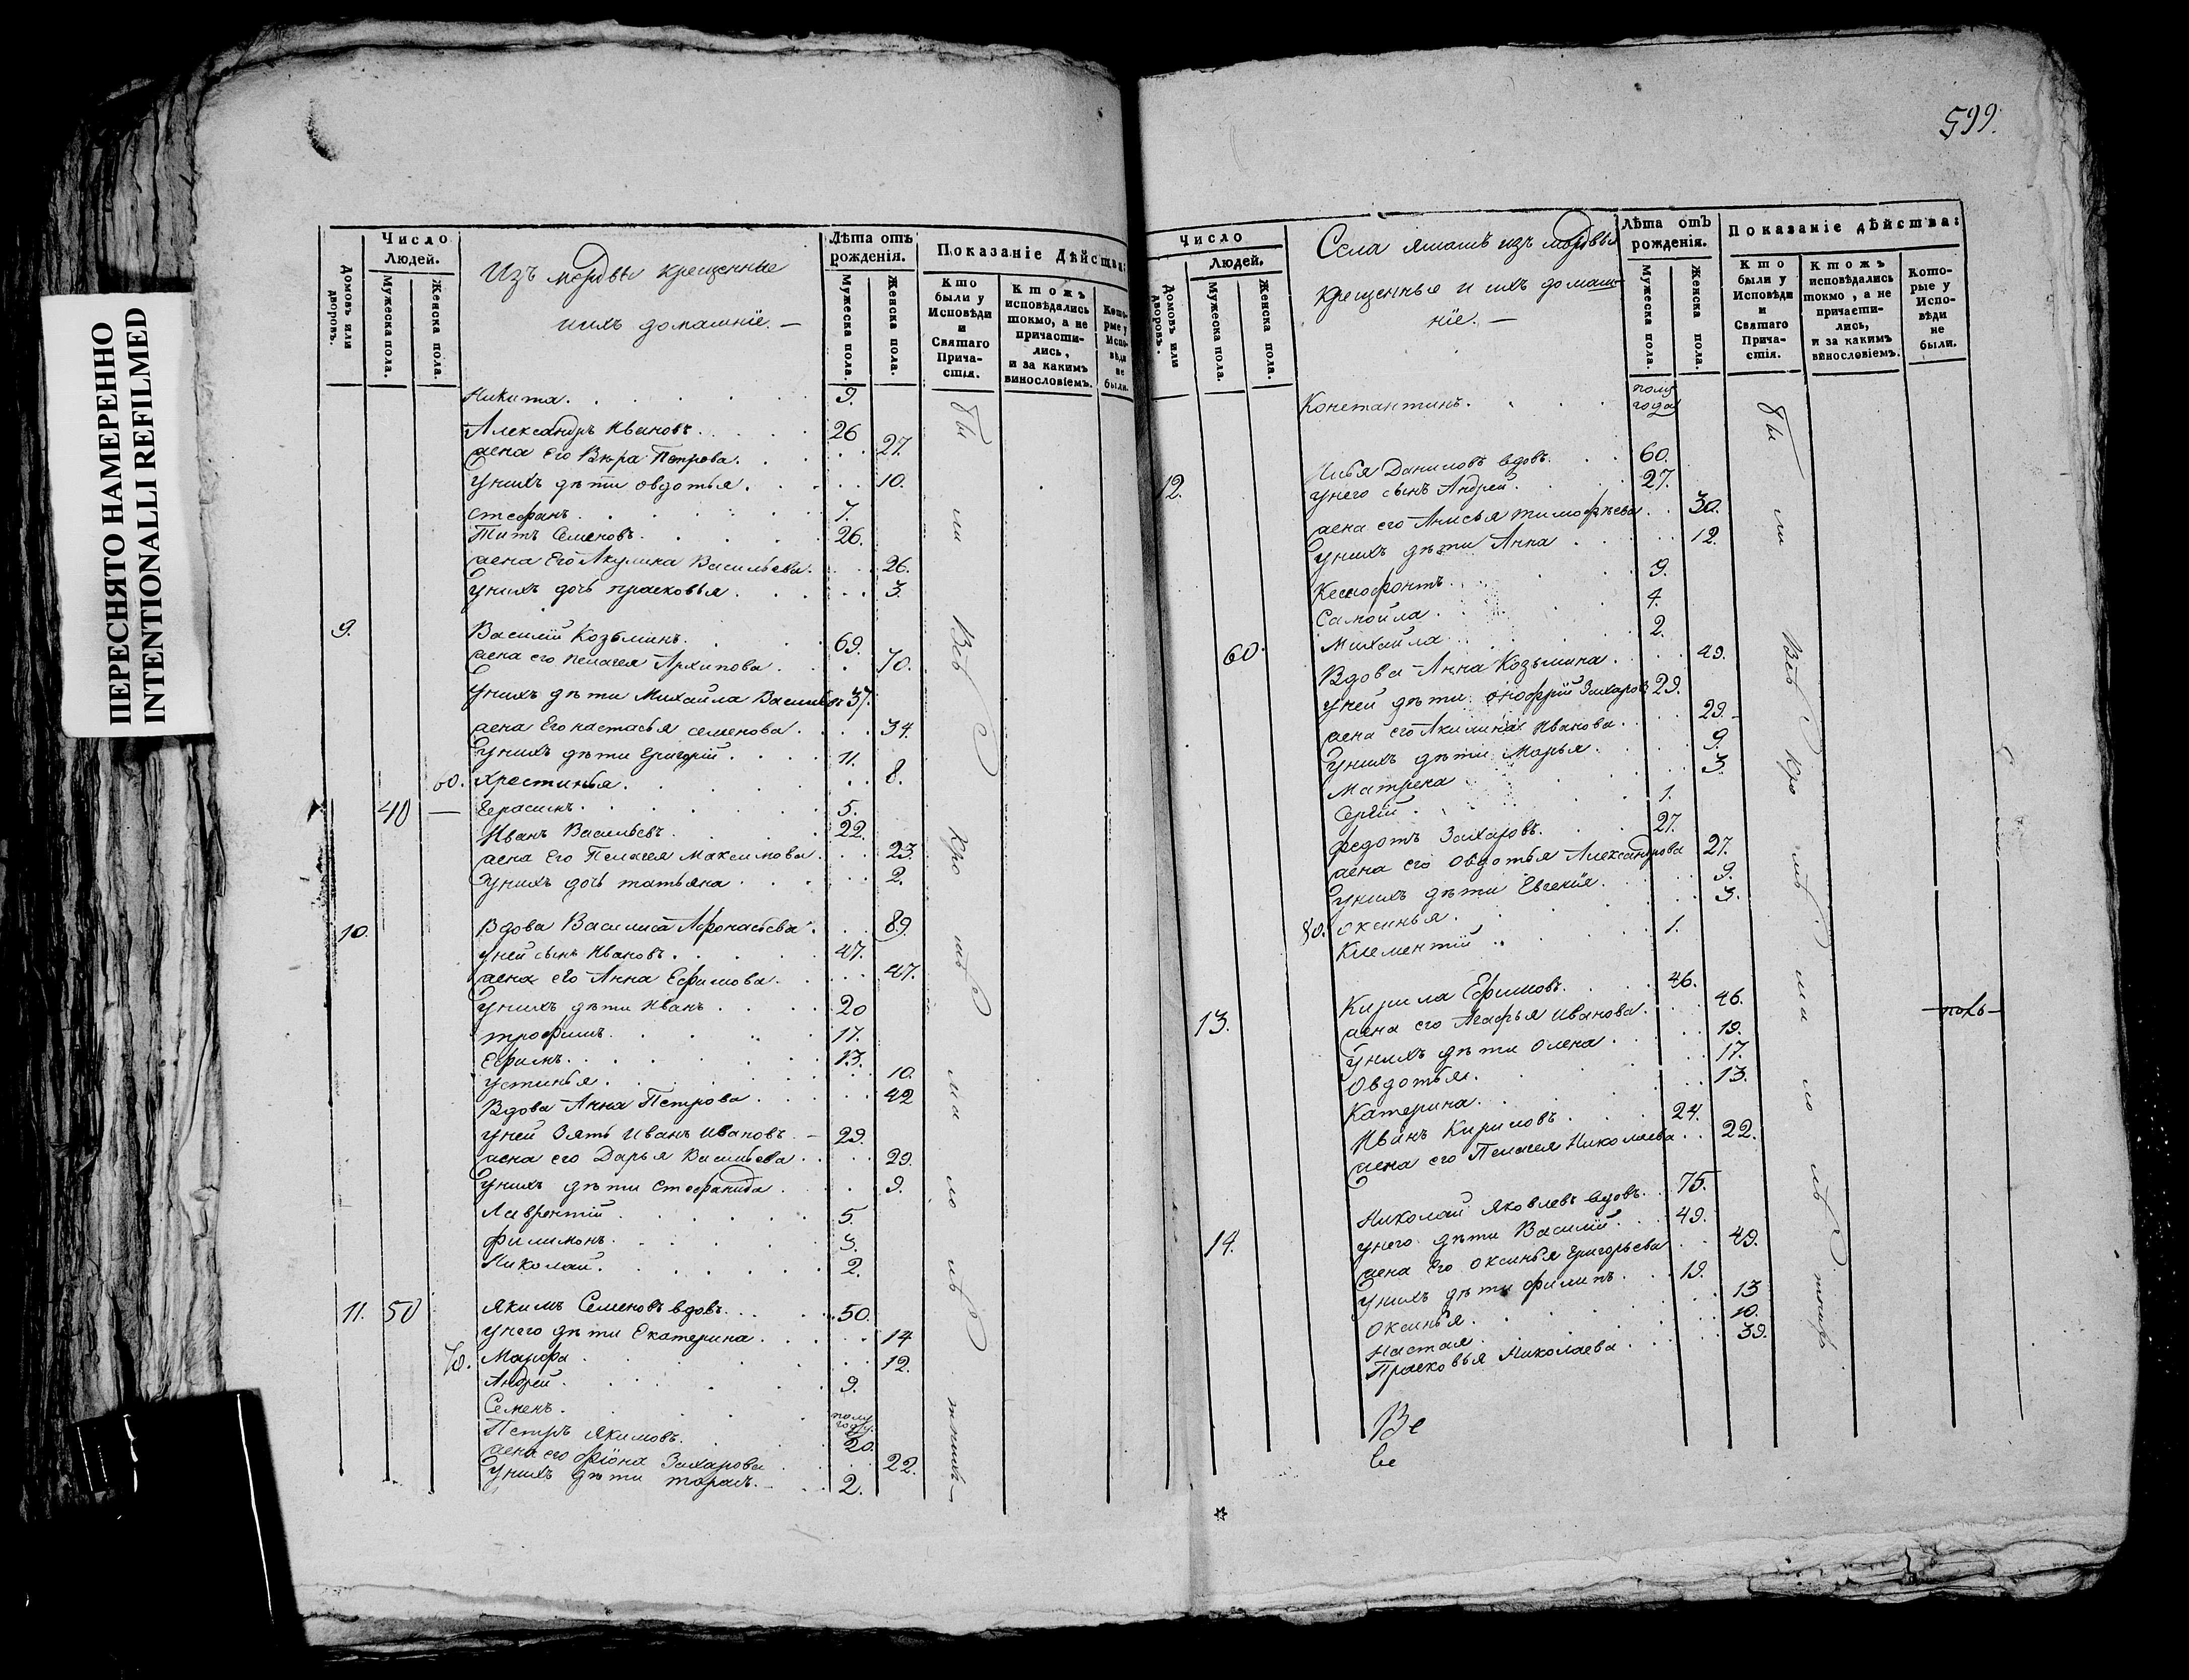 ПЕРЕСНЯТО НАМЕРЕННО
INTENTIONALLI REFILMED
Домовъ или дворовъ.
Число Людей.
Мужеска пола.
Женска пола.
Изъ мордвы крещенные
ихъ домашнїе. —
Лѣта отъ рожденїя.
Мужеска пола.
Женска пола.
Показанїе Дѣйства:
Кто были у Исповѣди и Святаго Прича-стїя.
Ктожъ исповѣдались токмо, а не причасти-лись, и за какимъ винословїемъ.
Кото-рые у Испо-вѣди не были.
Никита. 9.
Александръ Ивановъ. 26
жена Его Вѣра Петрова. 27.
Унихъ дѣти овдотья. 10.
стефанъ. 7.
Титъ Семеновъ. 26.
жена Его Акулина Васильева. 26.
Унихъ дочь прасковья. 3.
9. Василїй Козьминъ. 69.
жена его пелагея Архипова. 70.
Унихъ дѣти Михайла Васильевъ 37.
жена Его настасья семенова. 34
Унихъ дѣти Григорїй. 11.
60. Хрестинья. 8.
40 — Герасимъ. 5.
Иванъ Васильевъ. 22.
жена Его Пелагея Максимова. 23.
Унихъ дочь татьяна. 2.
10. Вдова Василиса Афонасьева. 89.
уней сынъ Ивановъ. 47.
жена его Анна Ефимова. 47.
Унихъ дѣти Иванъ. 20
трофимъ. 17.
Ефимъ. 13.
устинья. 10.
Вдова Анна Петрова. 42
уней Зять Иванъ Ивановъ. — 29.
жена его Дарья Васильева. 29.
Унихъ дѣти Стефанида. 9.
Лаврентїй. 5.
филимонъ. 3.
Николай. 2.
11. 50 Якимъ Семеновъ вдовъ. 50.
унего дѣти Екатерина. 14
70. Марфа. 12.
Андрей. 9.
Семенъ. полу году.
Петръ Якимовъ. 20.
жена его Захарова 22.
Унихъ дѣти тарасъ. — 2.
бы ли Всѣ кро мѣ ма ло лѣ тнихъ —
599.
Домовъ или дворовъ.
Число Людей.
Мужеска пола.
Женска пола.
Села изъ мордвы
крещенныя и ихъ домаш-
нїе. —
Лѣта отъ рожденїя.
Мужеска пола.
Женска пола.
Показанїе дѣйства:
Кто были у Исповѣди и Святаго Прича-стїя.
Ктожъ исповѣдались токмо, а не причасти-лись, и за какимъ винословїемъ.
Кото-рые у Испо-вѣди не были.
Константинъ. полу года
12. Илья Даниловъ вдовъ. 60.
унего сынъ Андрей. 27.
жена его Анисья тимофѣева. 30.
Унихъ дѣти Анна 12.
Ксенофонтъ. 9.
Самойла. 4.
60. Михайла 2.
Вдова Анна Козьмина. 49.
уней дѣти онофрїй Захаровъ 29.
жена его Акилина Иванова. 29.
Унихъ дѣти Марья. 9.
Матрена 3.
Сергїй. 1.
федотъ Захаровъ. 27.
жена его Овдотья Александрова 27.
Унихъ дѣти Евгенїя. 9.
80. оксинья. 3.
Климентїй 1.
13. Кирила Ефимовъ. 46.
жена его Агафья Иванова. 46.
Унихъ дѣти олена. 19.
Овдотья. 17.
Катерина. 13.
Иванъ Кириловъ. 24.
жена его Пелагея Николаева. 22.
14. Николай Яковлевъ вдовъ. 75.
унего дѣти Василїй. 49.
жена Его оксинья Григорьева 49.
Унихъ дѣти филипъ. 19.
оксинья. 13
Настая. 10.
Прасковья Николаева. 39.
бы ли Всѣ кро мѣ ма ло лѣ
Ве
ве
☆